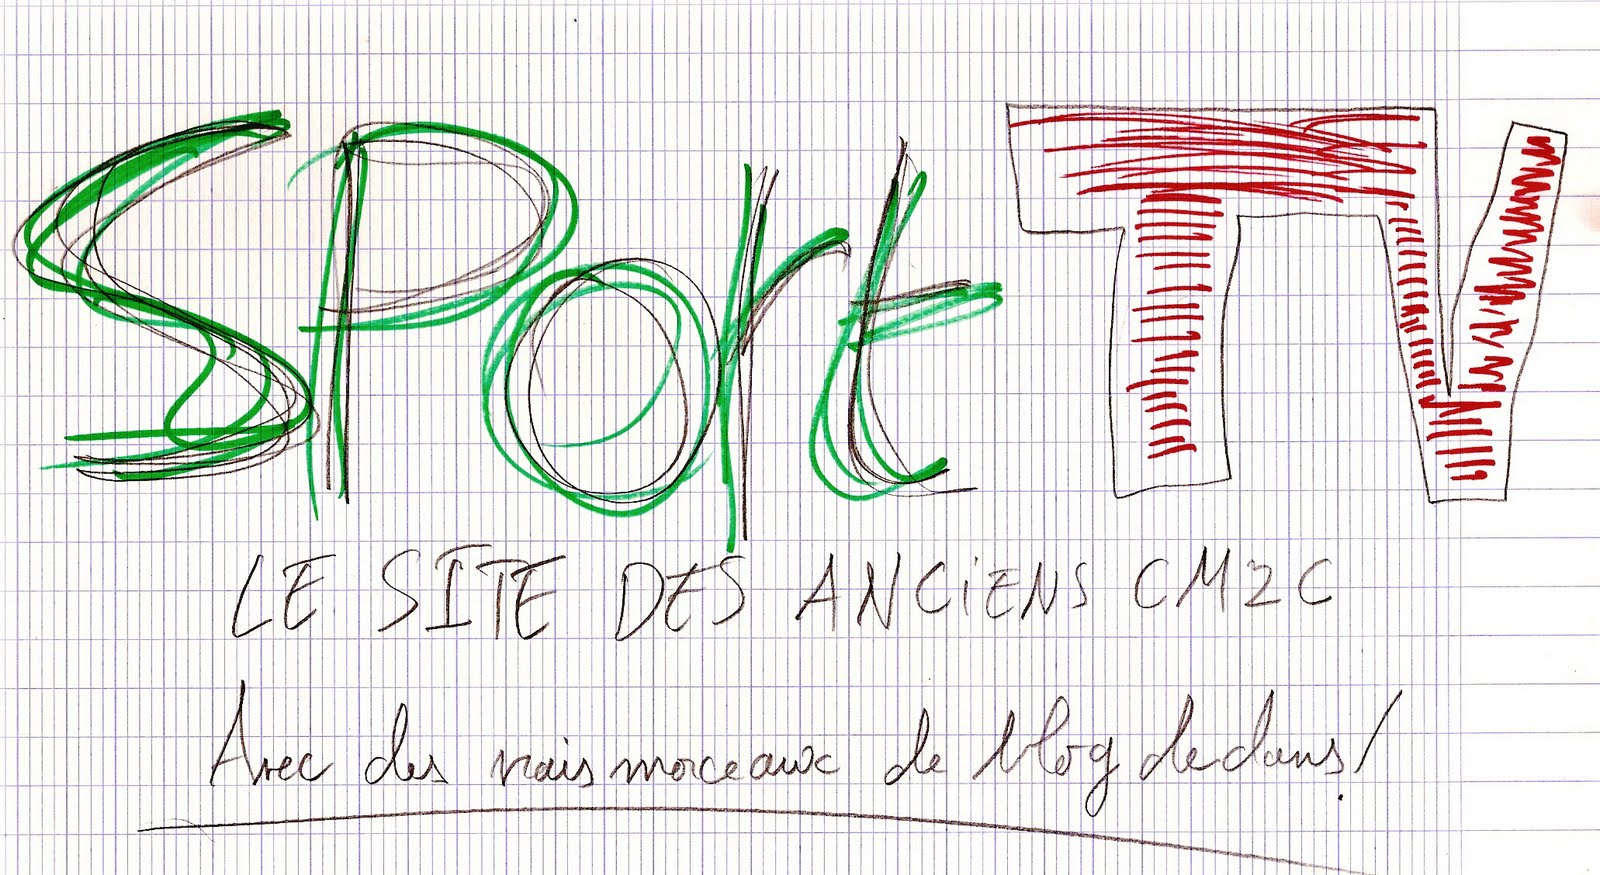 SPort TV
LE SITE DES ANCiENS CM2C
Avec des vrais morceaux de blog dedans!